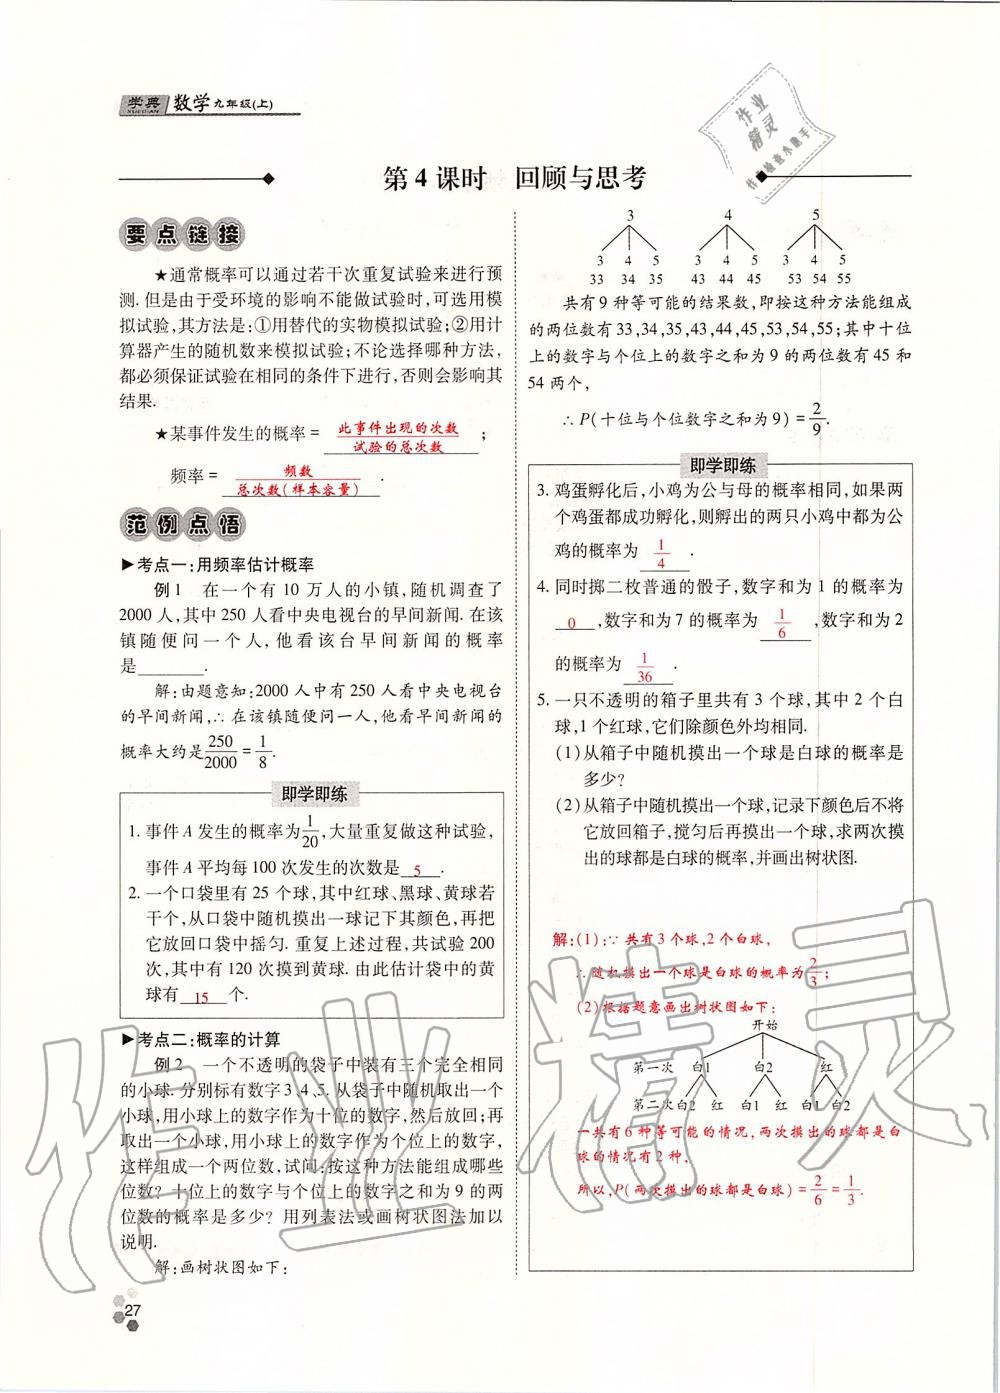 学典 数学 九年级(上)
XUEDIAN
第4课时 回顾与思考
要点链接
★通常概率可以通过若干次重复试验来进行预
测.但是由于受环境的影响不能做试验时,可选用模
拟试验,其方法是:①用替代的实物模拟试验;②用计
算器产生的随机数来模拟试验;不论选择哪种方法,
都必须保证试验在相同的条件下进行,否则会影响其
结果.
★某事件发生的概率= 此事件出现的次数/试验的总次数 ;
频率= 频数/总次数(样本容量) .
范例点悟
▶考点一:用频率估计概率
例1 在一个有10万人的小镇,随机调查了
2000人,其中250人看中央电视台的早间新闻.在该
镇随便问一个人,他看该台早间新闻的概率
是______.
解:由题意知:2000人中有250人看中央电视台
的早间新闻,∴在该镇随便问一人,他看早间新闻的
概率大约是250/2000=1/8.
即学即练
1. 事件A发生的概率为1/20,大量重复做这种试验,
事件A平均每100次发生的次数是 5 .
2. 一个口袋里有25个球,其中红球、黑球、黄球若
干个,从口袋中随机摸出一球记下其颜色,再把
它放回口袋中摇匀.重复上述过程,共试验200
次,其中有120次摸到黄球.由此估计袋中的黄
球有 15 个.
▶考点二:概率的计算
例2 一个不透明的袋子中装有三个完全相同
的小球.分别标有数字3、4、5.从袋子中随机取出一个
小球,用小球上的数字作为十位的数字,然后放回;再
取出一个小球,用小球上的数字作为个位上的数字,
这样组成一个两位数,试问:按这种方法能组成哪些
位数?十位上的数字与个位上的数字之和为9的两
位数的概率是多少?用列表法或画树状图法加以
说明.
解:画树状图如下:
3 4 5
3 4 5 3 4 5 3 4 5
33 34 35 43 44 45 53 54 55
共有9种等可能的结果数,即按这种方法能组成
的两位数有33,34,35,43,44,45,53,54,55;其中十位
上的数字与个位上的数字之和为9的两位数有45和
54两个,
∴P(十位与个位数字之和为9)=2/9.
即学即练
3. 鸡蛋孵化后,小鸡为公与母的概率相同,如果两
个鸡蛋都成功孵化,则孵出的两只小鸡中都为公
鸡的概率为 1/4 .
4. 同时掷二枚普通的骰子,数字和为1的概率为
0 ,数字和为7的概率为 1/6 ,数字和为2
的概率为 1/36 .
5. 一只不透明的箱子里共有3个球,其中2个白
球,1个红球,它们除颜色外均相同.
(1)从箱子中随机摸出一个球是白球的概率是
多少?
(2)从箱子中随机摸出一个球,记录下颜色后不将
它放回箱子,搅匀后再摸出一个球,求两次摸
出的球都是白球的概率,并画出树状图.
解:(1):∵共有3个球,2个白球,
∴随机摸出一个球是白球的概率为2/3;
(2)根据题意画出树状图如下:
开始
第一次 白1 白2 红
第二次白2 红 白1 红 白1 白2
一共有6种等可能的情况,两次摸出的球都是白
球的情况有2种,
所以,P(两次摸出的球都是白球)=2/6=1/3.
27
作业精灵
作业
精灵